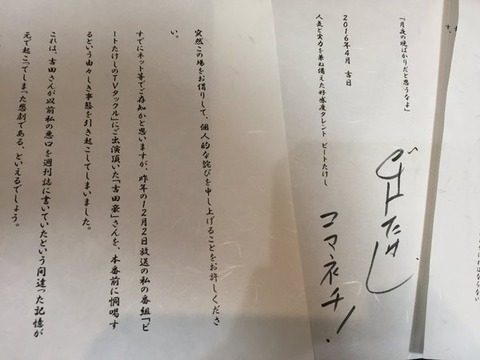 ならない
「月夜の晩ばかりだと思うなよ」
2016年4月　吉日
人気と実力を兼ね備えた好感度タレント　ビートたけし
ビートたけし
コマネチ！
突然この場をお借りして、個人的な詫びを申し上げることをお許しくださ
い。
すでにネット等でご存知かと思いますが、昨年の12月2日放送の私の番組「ビ
ートたけしのTVタックル」にご出演頂いた「吉田豪」さんを、本番前に恫喝す
るという由々しき事態を引き起こしてしまいました。
これは、吉田さんが以前私の悪口を週刊誌に書いていたという間違った記憶が
元で起こってしまった悲劇である、といえるでしょう。